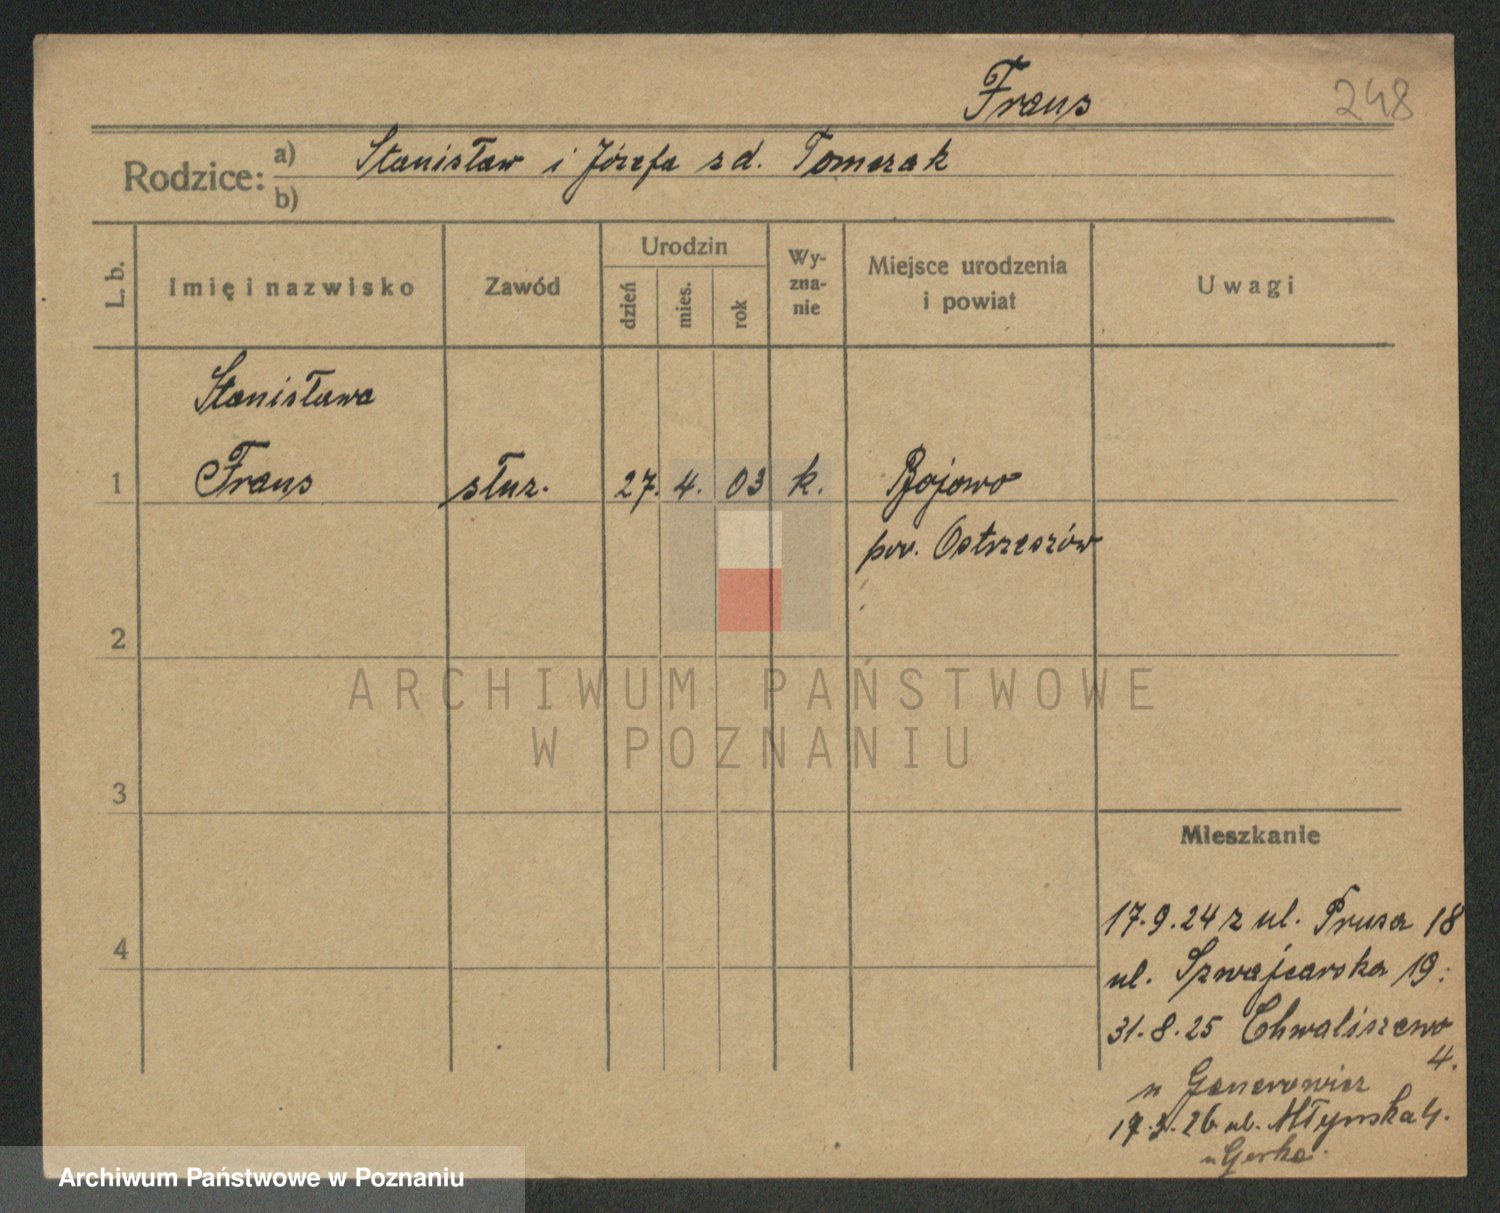 Frans
248
Rodzice: a) Stanisław i Józefa z d. Tomczak
b)
L. b.
Imię i nazwisko
Zawód
Urodzin
dzień
mies.
rok
Wy-
zna-
nie
Miejsce urodzenia
i powiat
Uwagi
Stanisława
1 Frans służ. 27. 4. 03 k. Bojowo
pow. Ostrzeszów
2
ARCHIWUM PAŃSTWOWE
W POZNANIU
3
Mieszkanie
17.9.24 z ul. Prusa 18
4
ul. Szwajcarska 19:
31.8.25 Chwaliszewo
4.
u
ul. Młyńska 4.
u
Archiwum Państwowe w Poznaniu